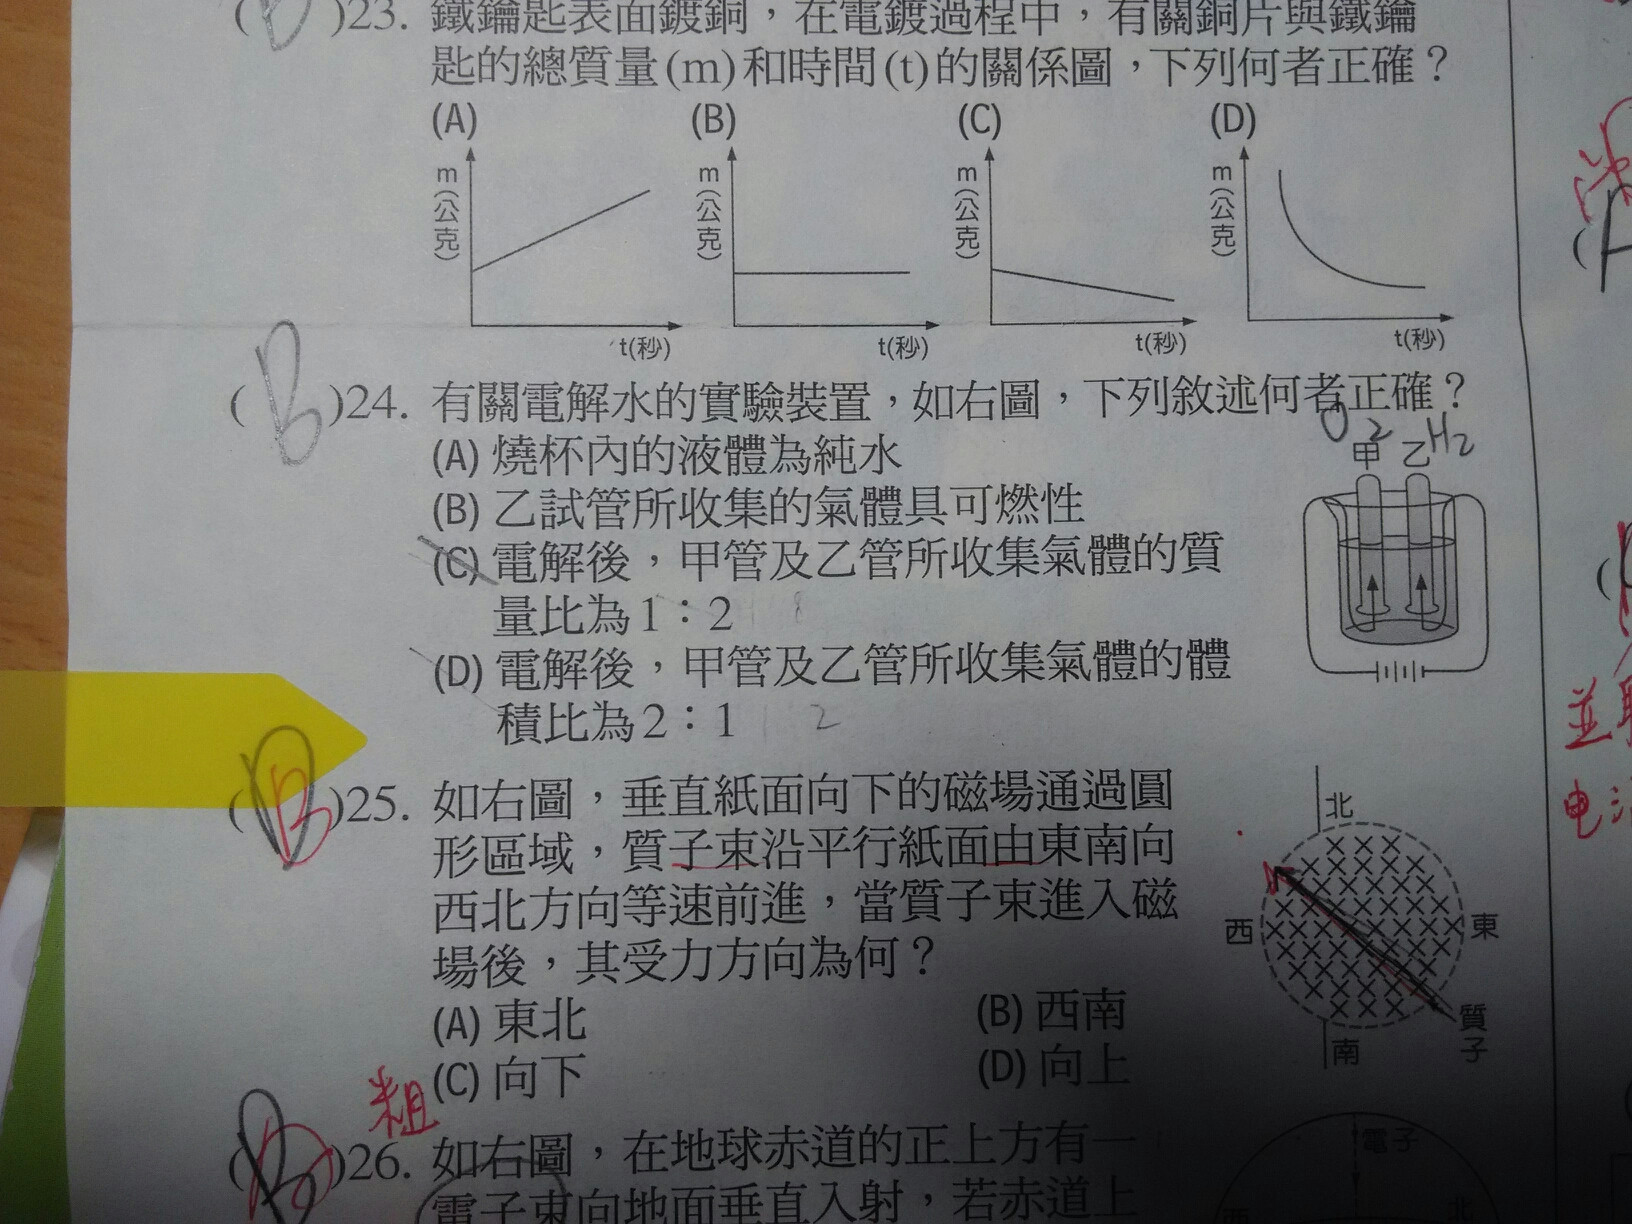 ( )23. 鐵鑰匙表面鍍銅，在電鍍過程中，有關銅片與鐵鑰
匙的總質量(m)和時間(t)的關係圖，下列何者正確？
(A) (B) (C) (D)
m(公克) m(公克) m(公克) m(公克)
t(秒) t(秒) t(秒) t(秒)
(B)24. 有關電解水的實驗裝置，如右圖，下列敘述何者正確？
O2 H2
甲 乙
(A) 燒杯內的液體為純水
(B) 乙試管所收集的氣體具可燃性
(C) 電解後，甲管及乙管所收集氣體的質
量比為1：2
8
(D) 電解後，甲管及乙管所收集氣體的體
積比為2：1
1 2
(B)25. 如右圖，垂直紙面向下的磁場通過圓
形區域，質子束沿平行紙面由東南向
西北方向等速前進，當質子束進入磁
場後，其受力方向為何？
北
西 東
南
質子
(A) 東北 (B) 西南
(C) 向下 (D) 向上
粗
( )26. 如右圖，在地球赤道的正上方有一
電子束向地面垂直入射，若赤道上
電子
西 北
並
电